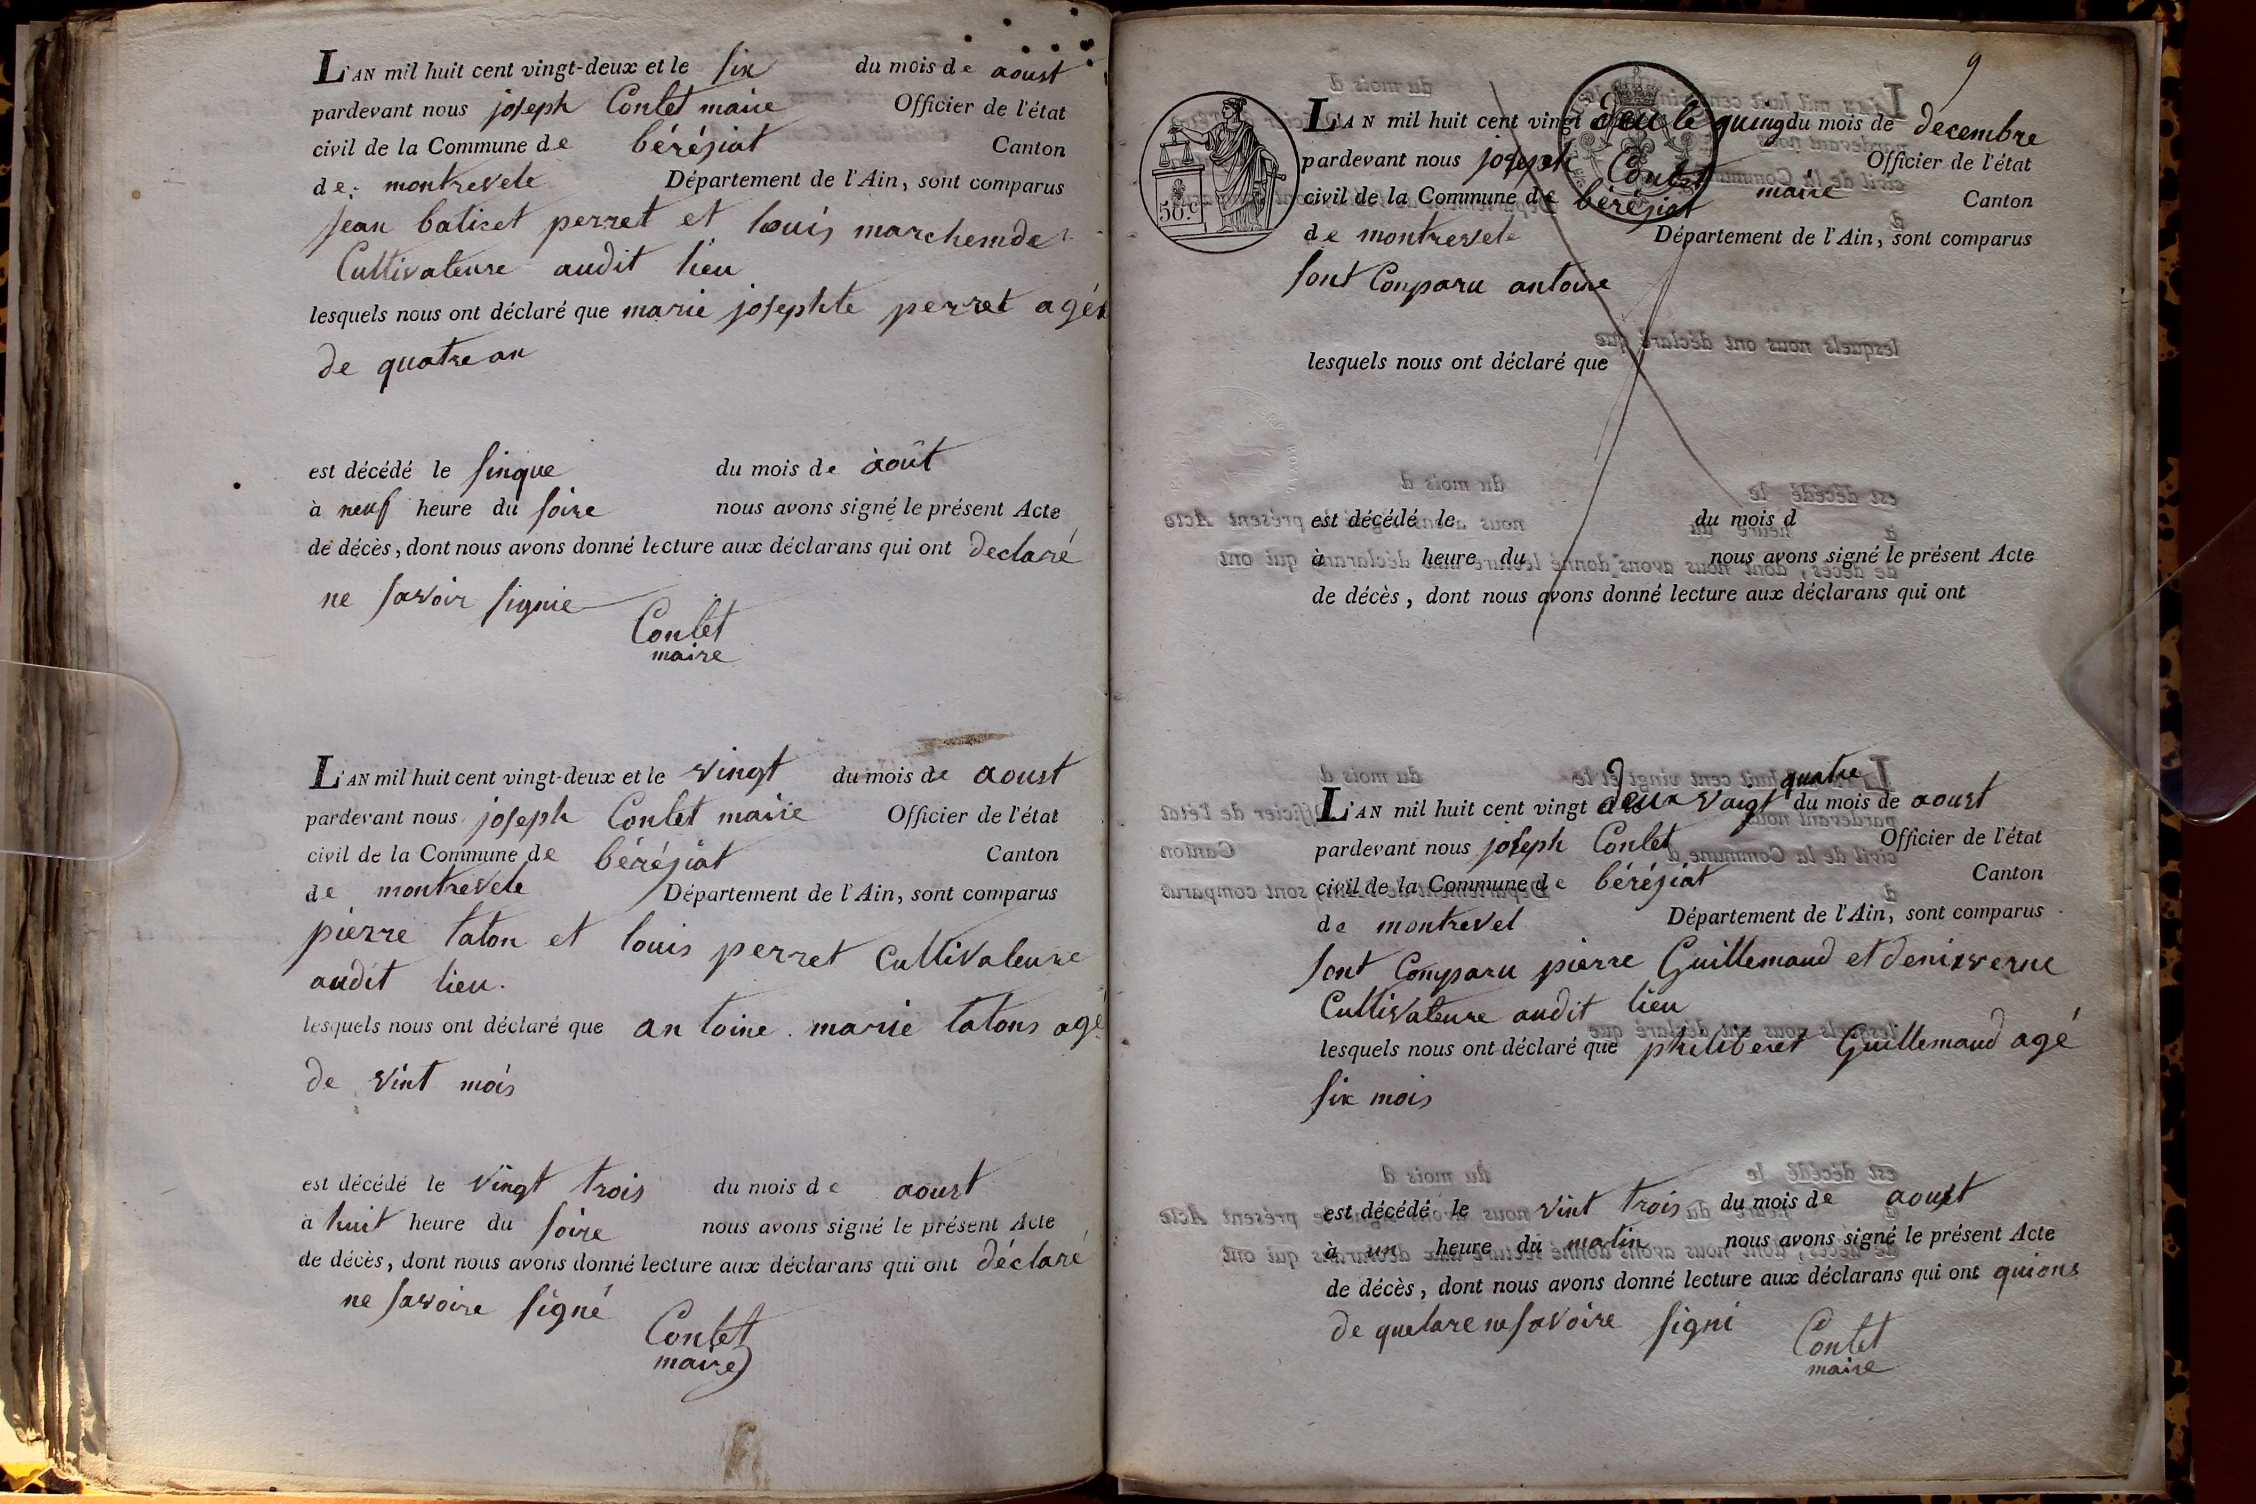 L'AN mil huit cent vingt-deux et le six du mois de aoust
pardevant nous joseph Contet maire Officier de l'état
civil de la Commune de béréziat Canton
de montrevele Département de l'Ain, sont comparus
jean batiset perret et louis marchemde
Cultivateure audit lieu
lesquels nous ont déclaré que marie josephte perret agée
de quatre an
est décédé le sinque du mois de août
à neuf heure du soire nous avons signé le présent Acte
de décès, dont nous avons donné lecture aux déclarans qui ont declaré
ne savoir signie
Contet
maire
L'AN mil huit cent vingt-deux et le vingt du mois de aoust
pardevant nous joseph Contet maire Officier de l'état
civil de la Commune de béréziat Canton
de montrevele Département de l'Ain, sont comparus
pierre taton et louis perret Cultivateure
audit lieu.
lesquels nous ont déclaré que antoine marie tatons agé
de vint mois
est décédé le vingt trois du mois de aoust
à huit heure du soire nous avons signé le présent Acte
de décès, dont nous avons donné lecture aux déclarans qui ont déclaré
ne savoire signé
Contet
maire
9
50 c
L'AN mil huit cent vingt deu le quinq du mois de decembre
pardevant nous joseph Contet Officier de l'état
civil de la Commune de béréziat maire Canton
de montrevele Département de l'Ain, sont comparus
sont Conparu antoine
lesquels nous ont déclaré que
est décédé le du mois d
à heure du nous avons signé le présent Acte
de décès, dont nous avons donné lecture aux déclarans qui ont
quatre
L'AN mil huit cent vingt deux vaigt du mois de aoust
pardevant nous joseph Contet Officier de l'état
civil de la Commune de béréziat Canton
de montrevel Département de l'Ain, sont comparus
sont Comparu pierre Guillemaud et denis verne
Cultivateure audit lieu
lesquels nous ont déclaré que philiberet Guillemaud agé
six mois
est décédé le vint trois du mois de aoust
à un heure du matin nous avons signé le présent Acte
de décès, dont nous avons donné lecture aux déclarans qui ont quions
de quelare ne savoire signi
Contet
maire